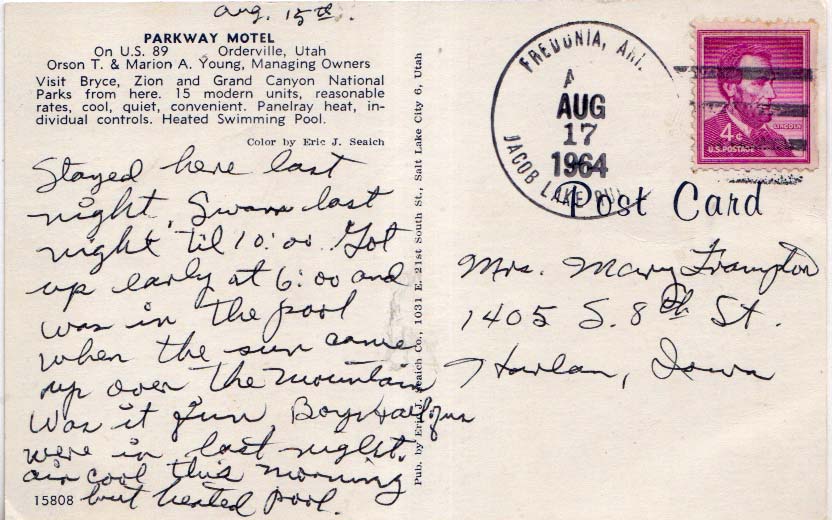 Aug. 15th.
PARKWAY MOTEL
On U.S. 89 Orderville, Utah
Orson T. & Marion A. Young, Managing Owners
Visit Bryce, Zion and Grand Canyon National
Parks from here. 15 modern units, reasonable
rates, cool, quiet, convenient. Panelray heat, in-
dividual controls. Heated Swimming Pool.
Color by Eric J. Seaich
Stayed here last
night. Swam last
night 'til 10:00. Got
up early at 6:00 and
was in the pool
when the sun came
up over the mountain
Was it fun. Boys
were in last night.
air cool this morning
but heated pool.
15808
Pub. by Eric J. Seaich Co., 1031 E. 21st South St., Salt Lake City 6, Utah
FREDONIA, ARI.
A
AUG
17
1964
JACOB LAKE RU
4¢
LINCOLN
U.S. POSTAGE
Post Card
Mrs. Mary Frampton
1405 S. 8th St.
Harlan, Iowa